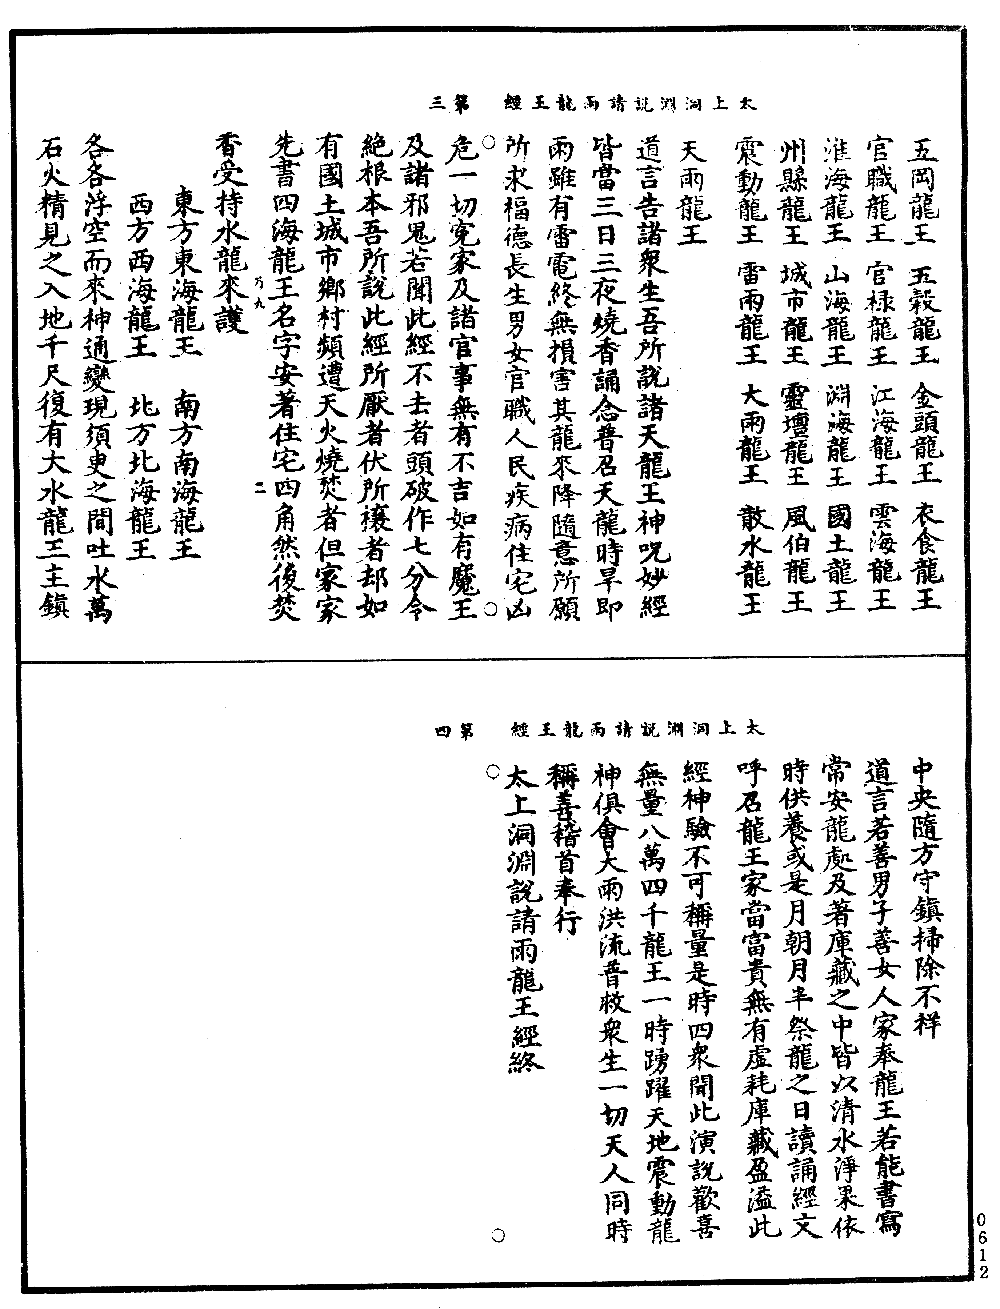 太上洞淵說請雨龍王經　第三
五岡龍王　五穀龍王　金頭龍王　衣食龍王
官職龍王　官祿龍王　江海龍王　雲海龍王
淮海龍王　山海龍王　淵海龍王　國土龍王
州縣龍王　城市龍王　靈壇龍王　風伯龍王
震動龍王　雷雨龍王　大雨龍王　散水龍王
天雨龍王
道言告諸衆生吾所說諸天龍王神呪妙經
皆當三日三夜燒香誦念普召天龍時旱即
雨雖有雷電終無損害其龍來降隨意所願
所求福德長生男女官職人民疾病住宅凶
危一切冤家及諸官事無有不吉如有魔王
及諸邪鬼若聞此經不去者頭破作七分令
絕根本吾所說此經所厭者伏所禳者却如
有國土城市鄉村頻遭天火燒焚者但家家
先書四海龍王名字安著住宅四角然後焚
二
香受持水龍來護
東方東海龍王　南方南海龍王
西方西海龍王　北方北海龍王
各各浮空而來神通變現須臾之間吐水萬
石火精見之入地千尺復有大水龍王主鎮
太上洞淵說請雨龍王經　第四
中央隨方守鎮掃除不祥
道言若善男子善女人家奉龍王若能書寫
常安龍處及著庫藏之中皆以清水淨果依
時供養或是月朝月半祭龍之日讀誦經文
呼召龍王家當富貴無有虛耗庫藏盈溢此
經神驗不可稱量是時四衆聞此演說歡喜
無量八萬四千龍王一時踴躍天地震動龍
神俱會大雨洪流普救衆生一切天人同時
稱善稽首奉行
太上洞淵說請雨龍王經終
0612